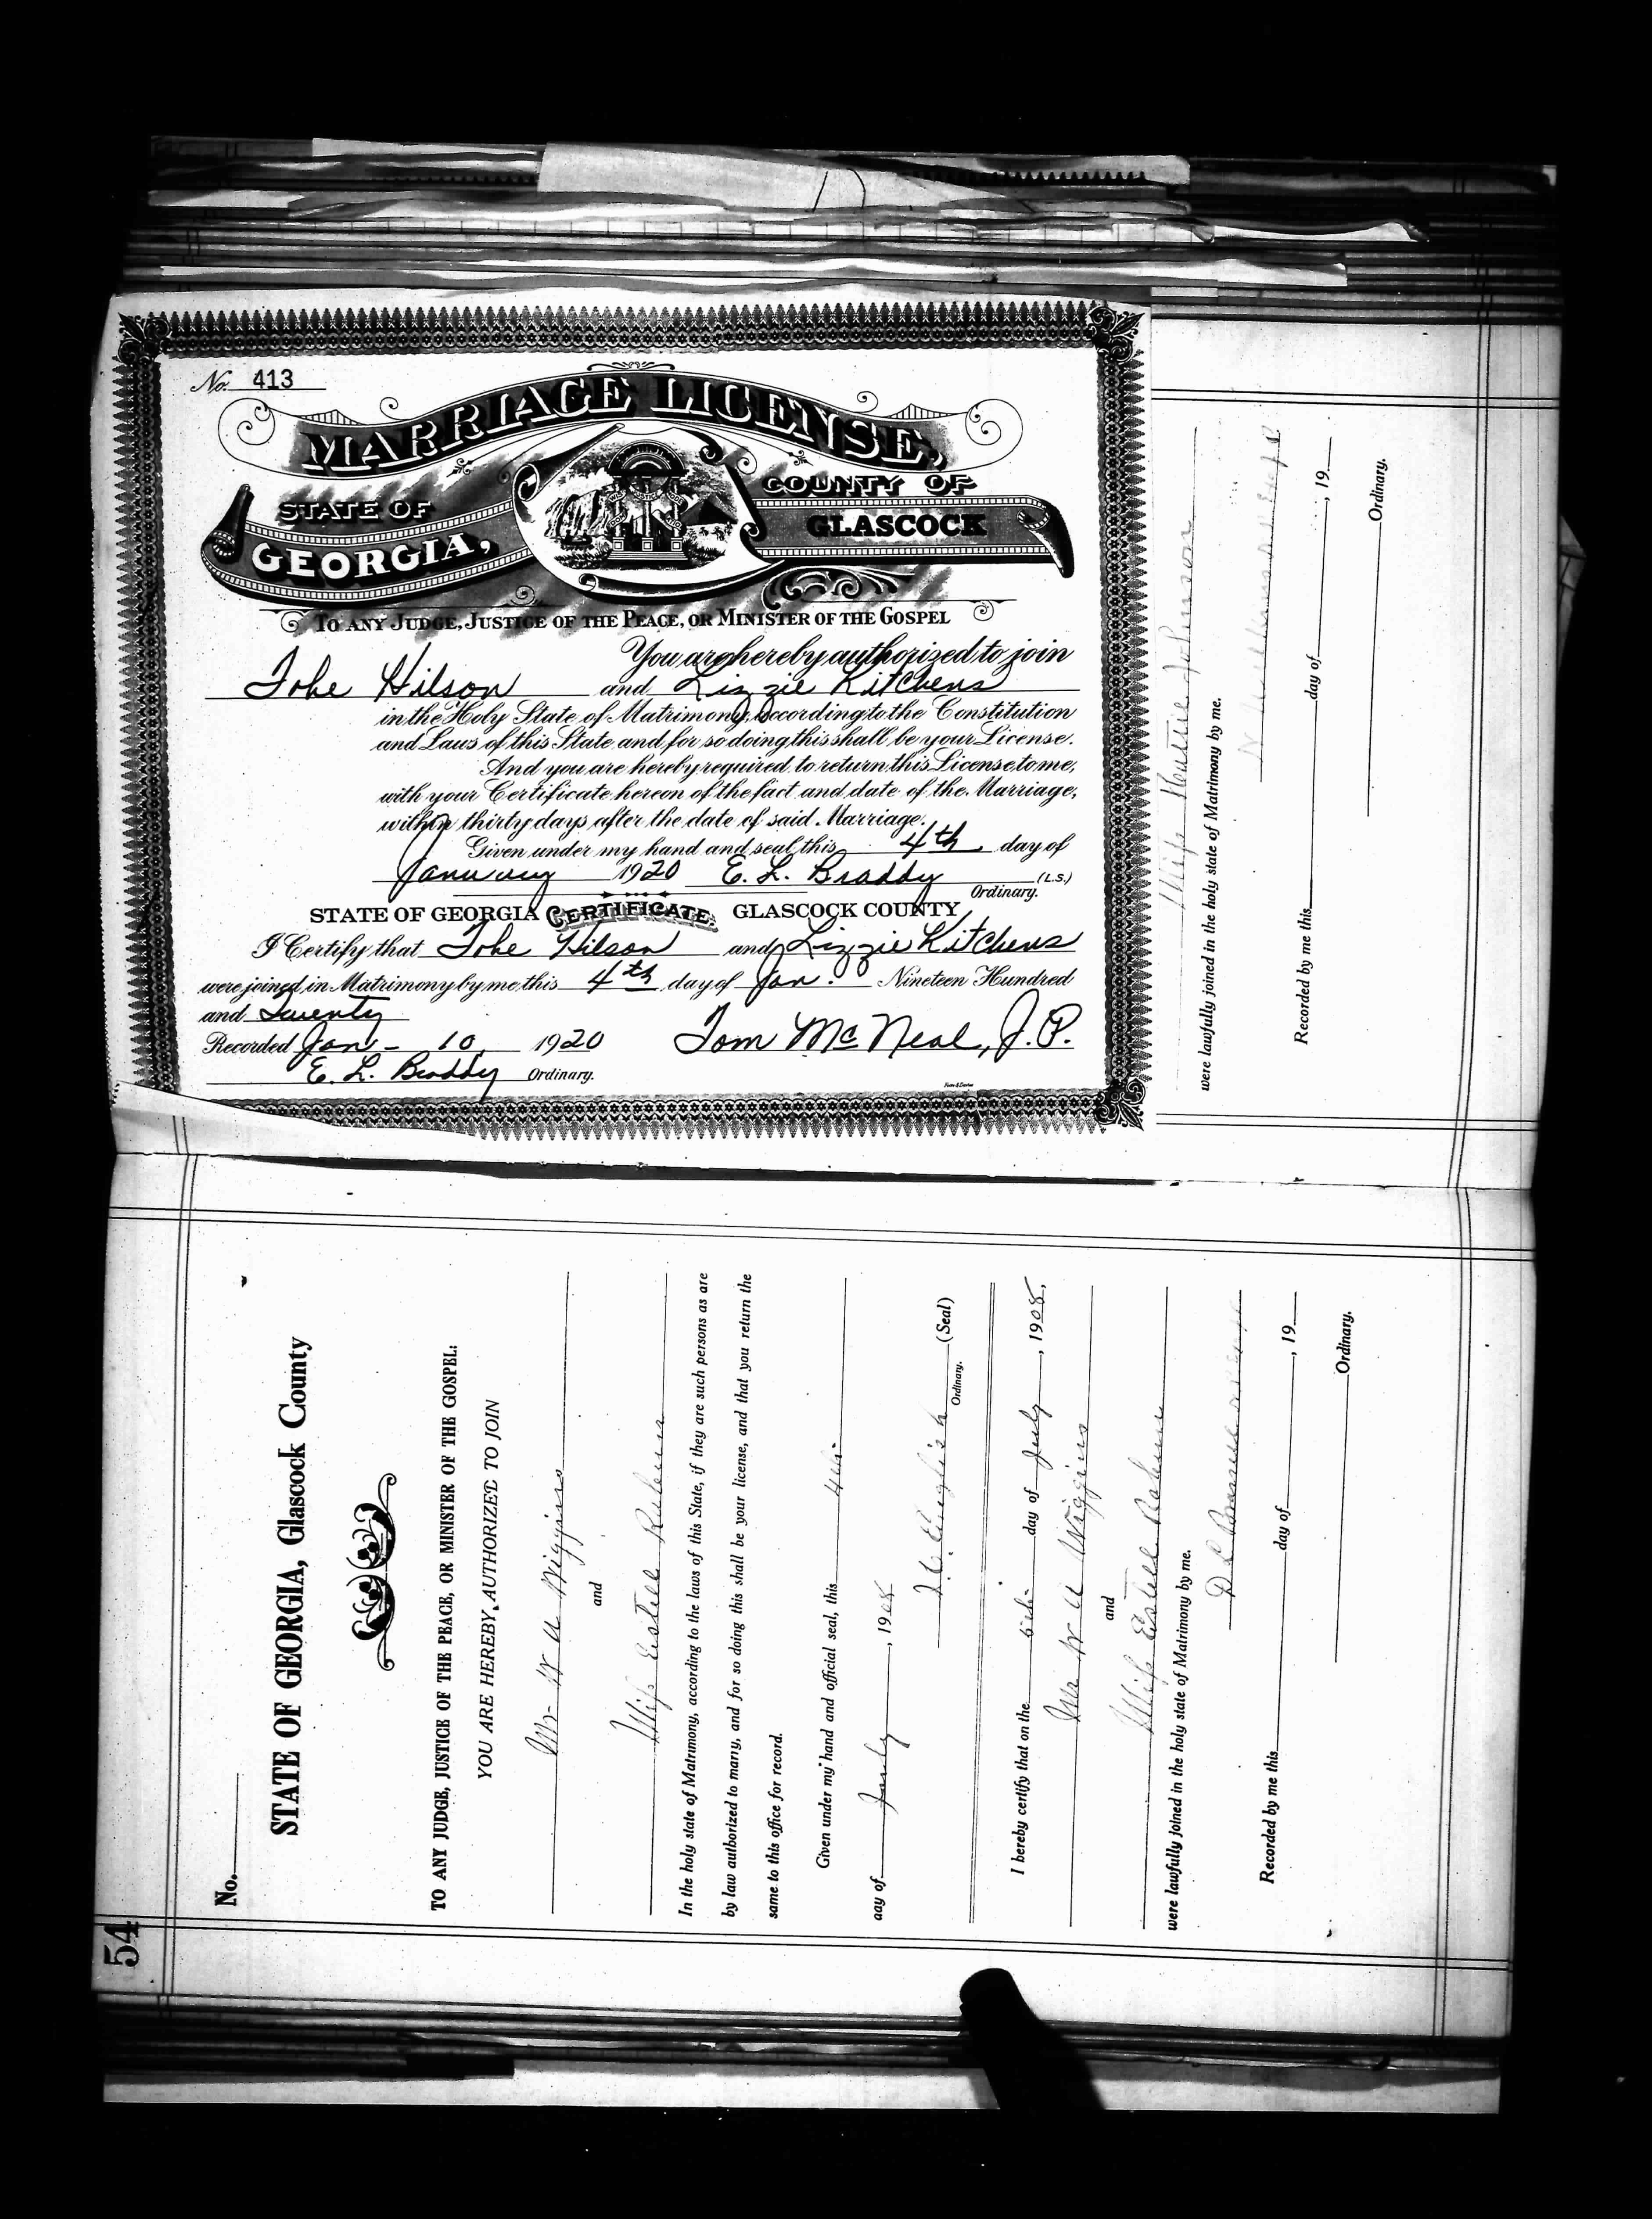 No. 413
MARRIAGE LICENSE,
STATE OF
GEORGIA,
COUNTY OF
GLASCOCK
TO ANY JUDGE, JUSTICE OF THE PEACE, OR MINISTER OF THE GOSPEL
You are hereby authorized to join
Tobe Hilson and Lizzie Kitchens
in the Holy State of Matrimony, according to the Constitution
and Laws of this State and for so doing this shall be your License.
And you are hereby required to return this License to me,
with your Certificate hereon of the fact and date of the Marriage,
within thirty days after the date of said Marriage.
Given under my hand and seal this 4th day of
January 1920 E. L. Braddy (L.S.)
Ordinary.
STATE OF GEORGIA CERTIFICATE. GLASCOCK COUNTY
I Certify that Tobe Hilson and Lizzie Kitchens
were joined in Matrimony by me this 4th day of Jan. Nineteen Hundred
and Twenty
Recorded Jan- 10, 1920 Tom McNeal, J.P.
E. L. Braddy Ordinary.
Miss Johnson
were lawfully joined in the holy state of Matrimony by me.
Recorded by me this day of , 19
Ordinary.
54
No.
STATE OF GEORGIA, Glascock County
TO ANY JUDGE, JUSTICE OF THE PEACE, OR MINISTER OF THE GOSPEL:
YOU ARE HEREBY AUTHORIZED TO JOIN
Mr W A Wiggins
and
Miss Estell
In the holy state of Matrimony, according to the laws of this State, if they are such persons as are
by law authorized to marry, and for so doing this shall be your license, and that you return the
same to this office for record.
Given under my hand and official seal, this 4th
day of July , 1908
English (Seal)
Ordinary.
I hereby certify that on the day of July , 1908.
Mr W A Wiggins
and
Miss Estell
were lawfully joined in the holy state of Matrimony by me.
Recorded by me this day of , 19
Ordinary.